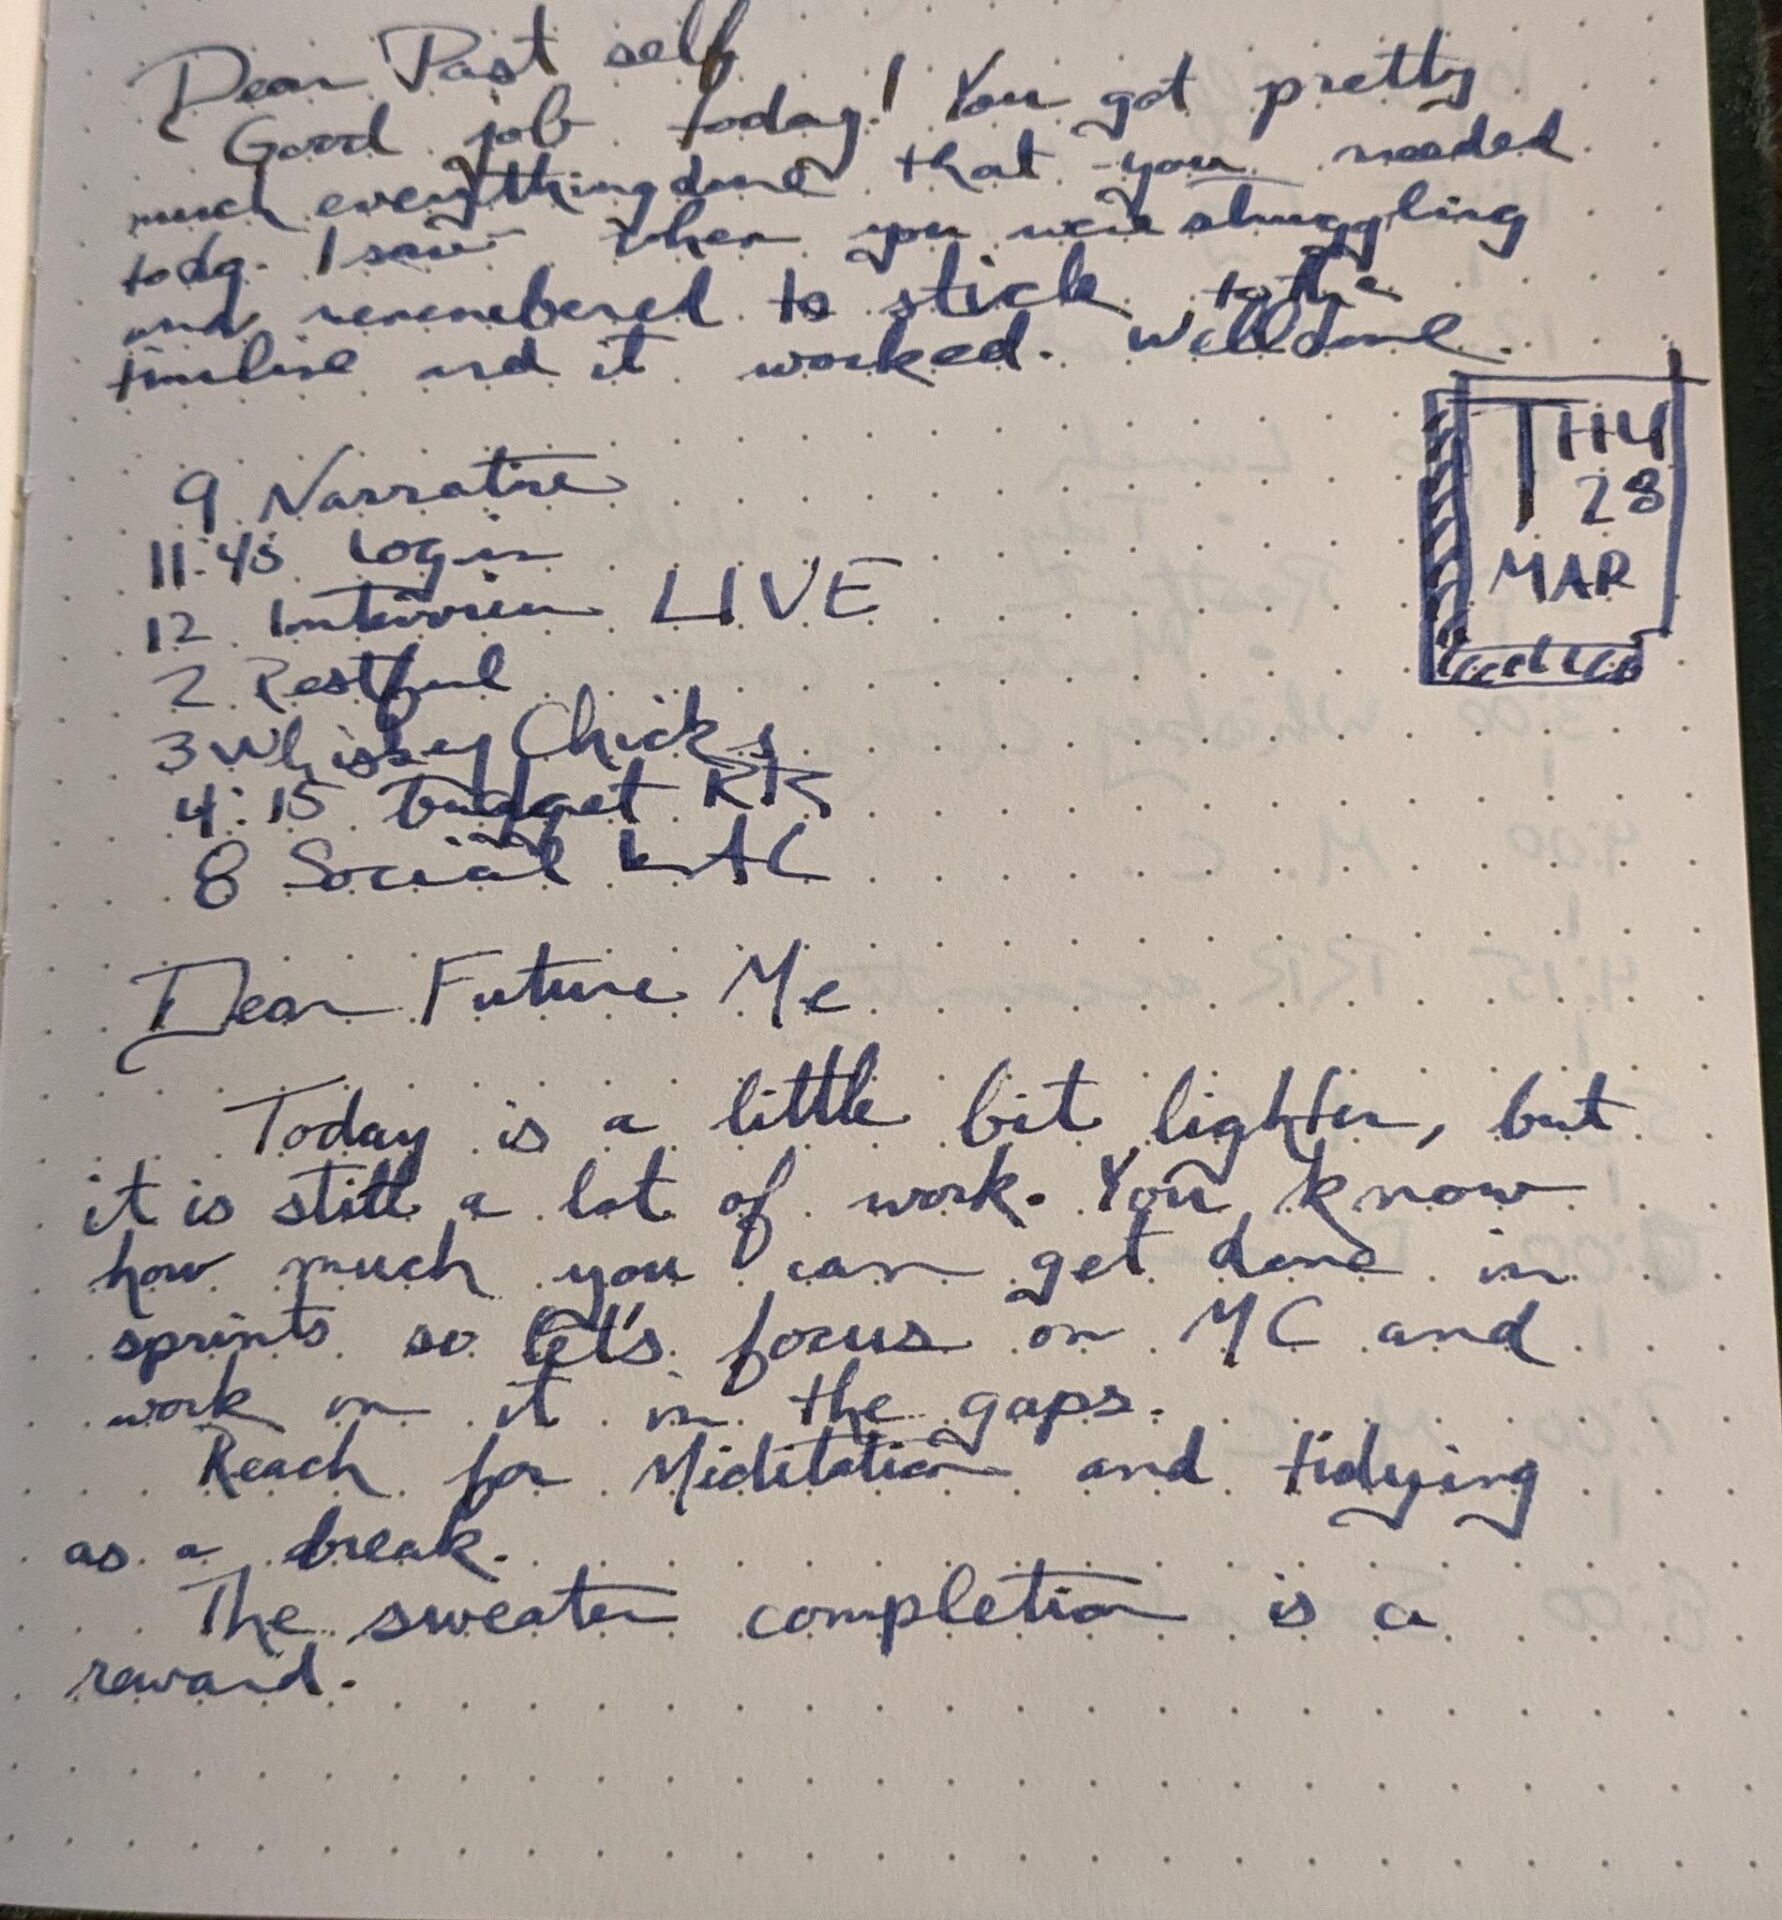 Dear Past self
Good job today! You got pretty
much everything done that you needed
today. I saw when you were struggling
and remembered to stick to the
timeline and it worked. Well done.
THU
28
MAR
9 Narrative
11:45 Login
12 Interview LIVE
2 Restful
3 Whiskey Chicks
4:15 budget RR
8 Social
Dear Future Me
Today is a little bit lighter, but
it is still a lot of work. You know
how much you can get done in
sprints so let's focus on MC and
work on it in the gaps.
Reach for Meditation and tidying
as a break.
The sweater completion is a
reward.